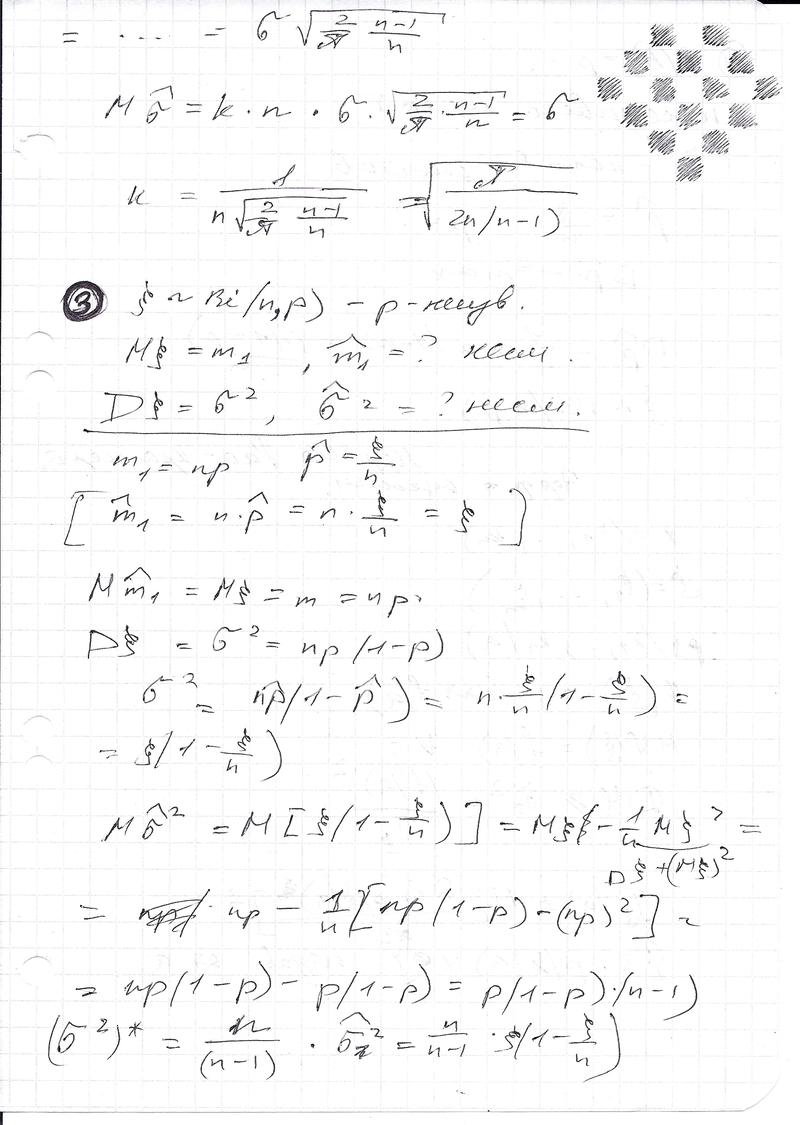 = ... = σ √(2/π · (n-1)/n)
M σ̂ = k · n · σ · √(2/π · (n-1)/n) = σ
k = 1/(n √(2/π · (n-1)/n)) = √(π/(2n(n-1)))
3 ξ ~ Bi(n,p) - p-
Mξ = m₁ , m̂₁ = ?
Dξ = σ², σ̂² = ?
m₁ = np p̂ = ξ/n
[ m̂₁ = n·p̂ = n · ξ/n = ξ ]
M m̂₁ = Mξ = m = np.
Dξ = σ² = np(1-p)
σ² = n̂p̂(1-p̂) = n·ξ/n(1-ξ/n) =
= ξ(1-ξ/n)
M σ̂² = M[ξ(1-ξ/n)] = Mξ - 1/n Mξ² =
Dξ+(Mξ)²
= np - 1/n[np(1-p)-(np)²] =
= np(1-p) - p(1-p) = p(1-p)·(n-1)
(σ²)* = n/(n-1) · σ̂² = n/(n-1) · ξ(1-ξ/n)